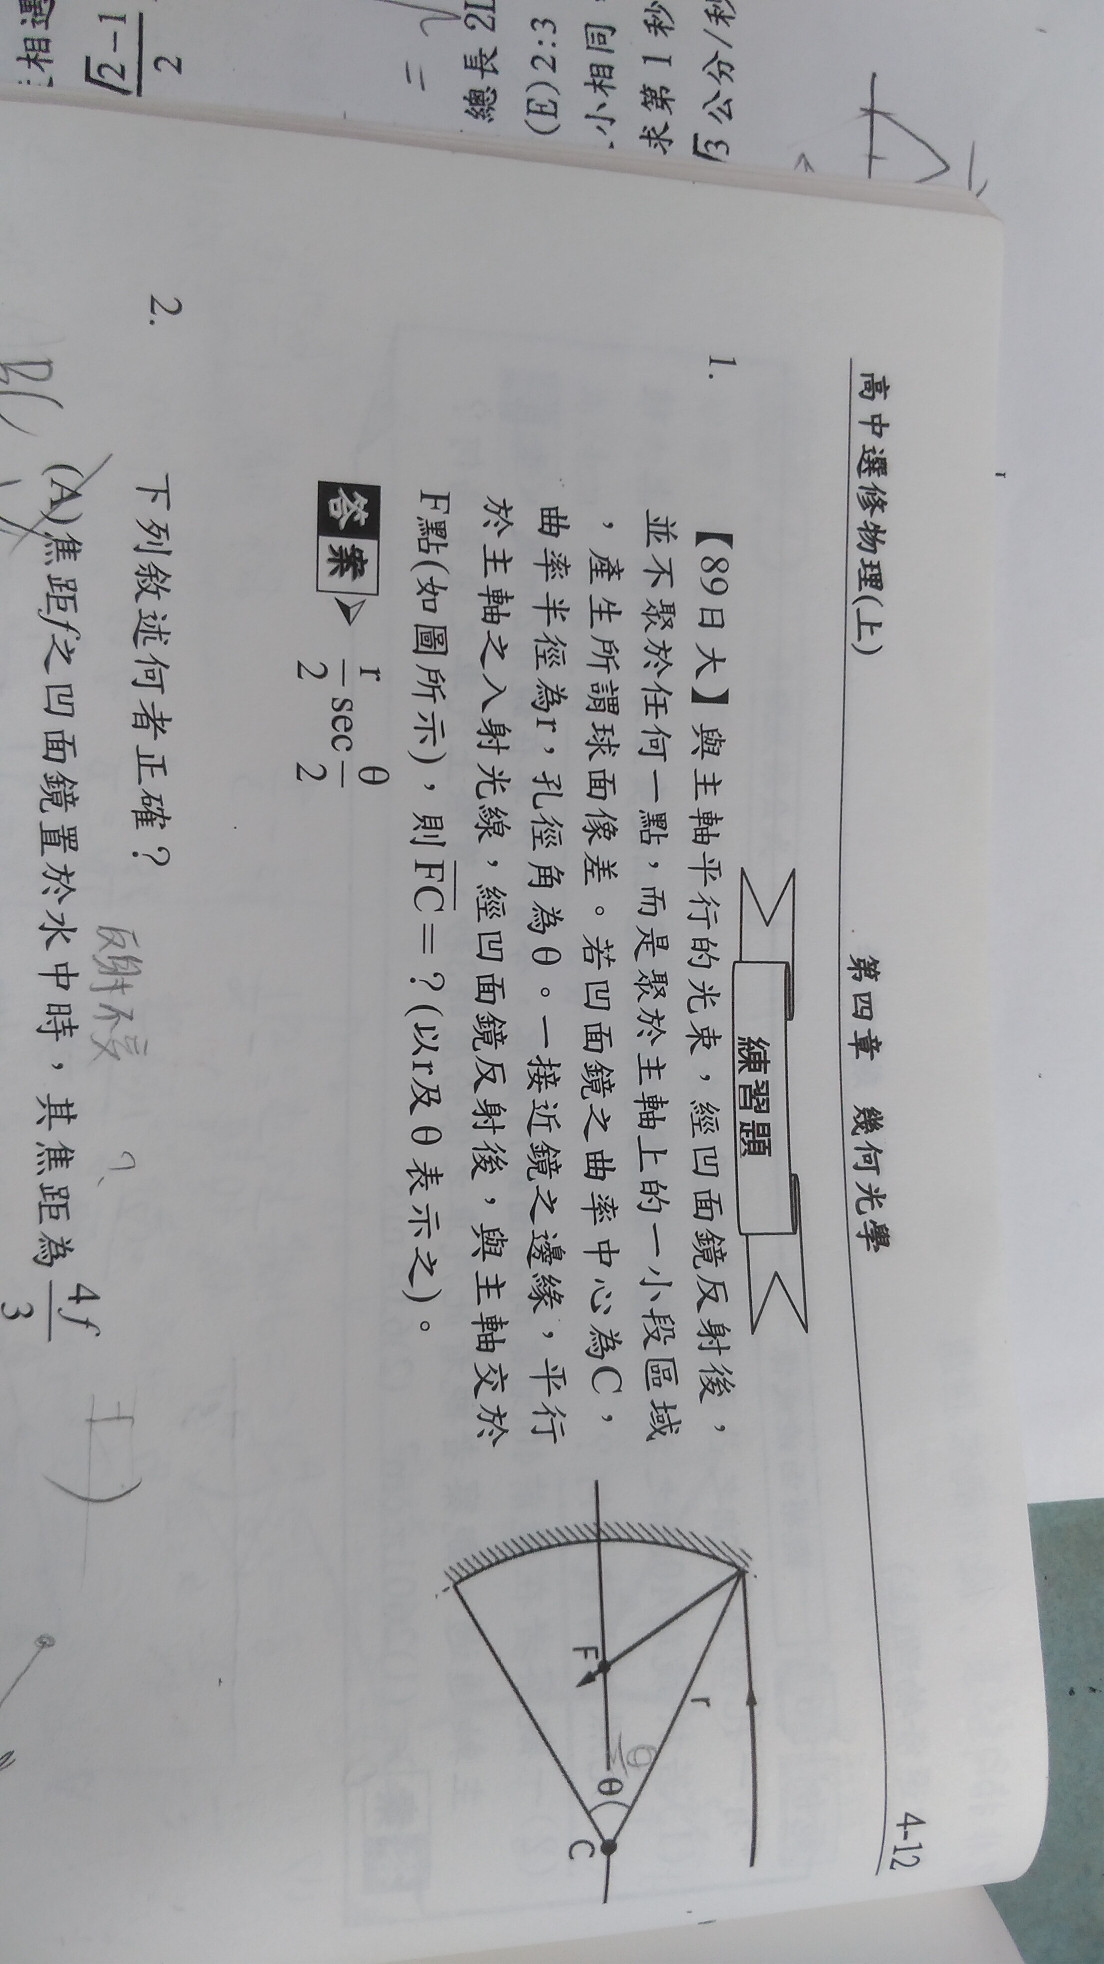 高中選修物理(上)　第四章　幾何光學　4-12
練習題
1.　【89日大】與主軸平行的光束，經凹面鏡反射後，
並不聚於任何一點，而是聚於主軸上的一小段區域
，產生所謂球面像差。若凹面鏡之曲率中心為C，
曲率半徑為r，孔徑角為θ。一接近鏡之邊緣，平行
於主軸之入射光線，經凹面鏡反射後，與主軸交於
F點(如圖所示)，則FC=？(以r及θ表示之)。
r
F
θ
C
θ/2
答案 r/2 sec θ/2
2.　下列敘述何者正確？
反射不變
(A)焦距f之凹面鏡置於水中時，其焦距為4f/3
公分/秒
求第1秒
小相同
(E)2:3
總是
2
√2-1